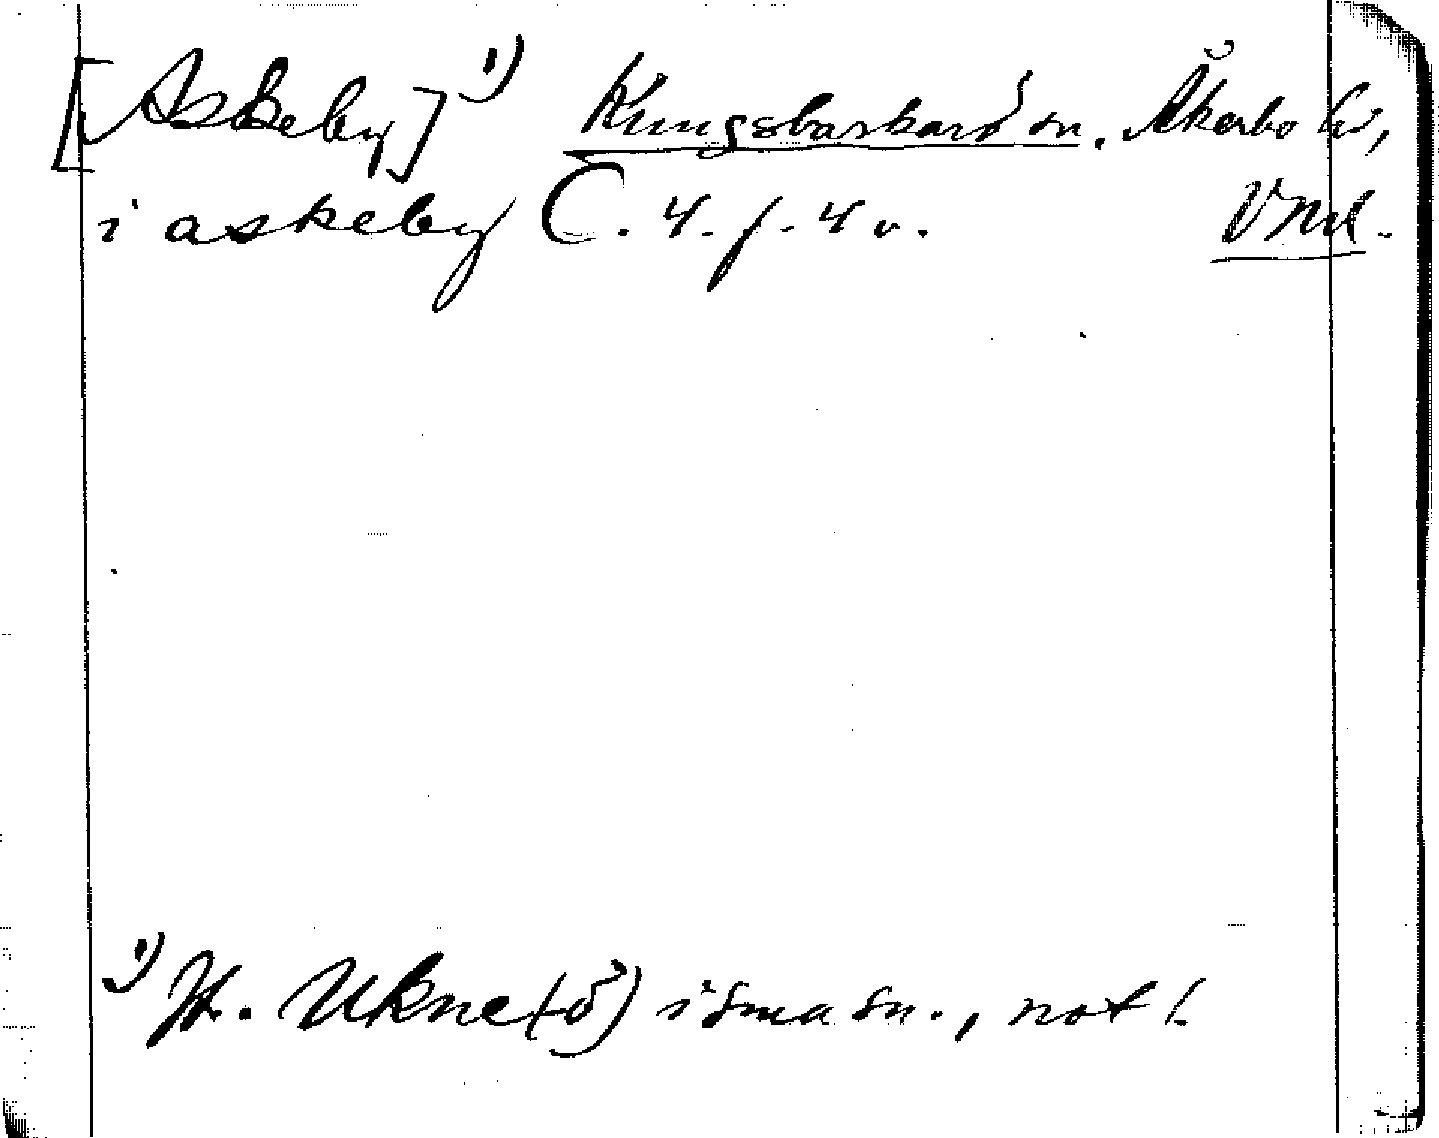 [Askeby] 1) Kungsbarkarö sn. Åkerbo hd,
i askeby C. 4. f. 4 v. Vml.
1) Jf. Ukne(ö) i sma sn., not 1.